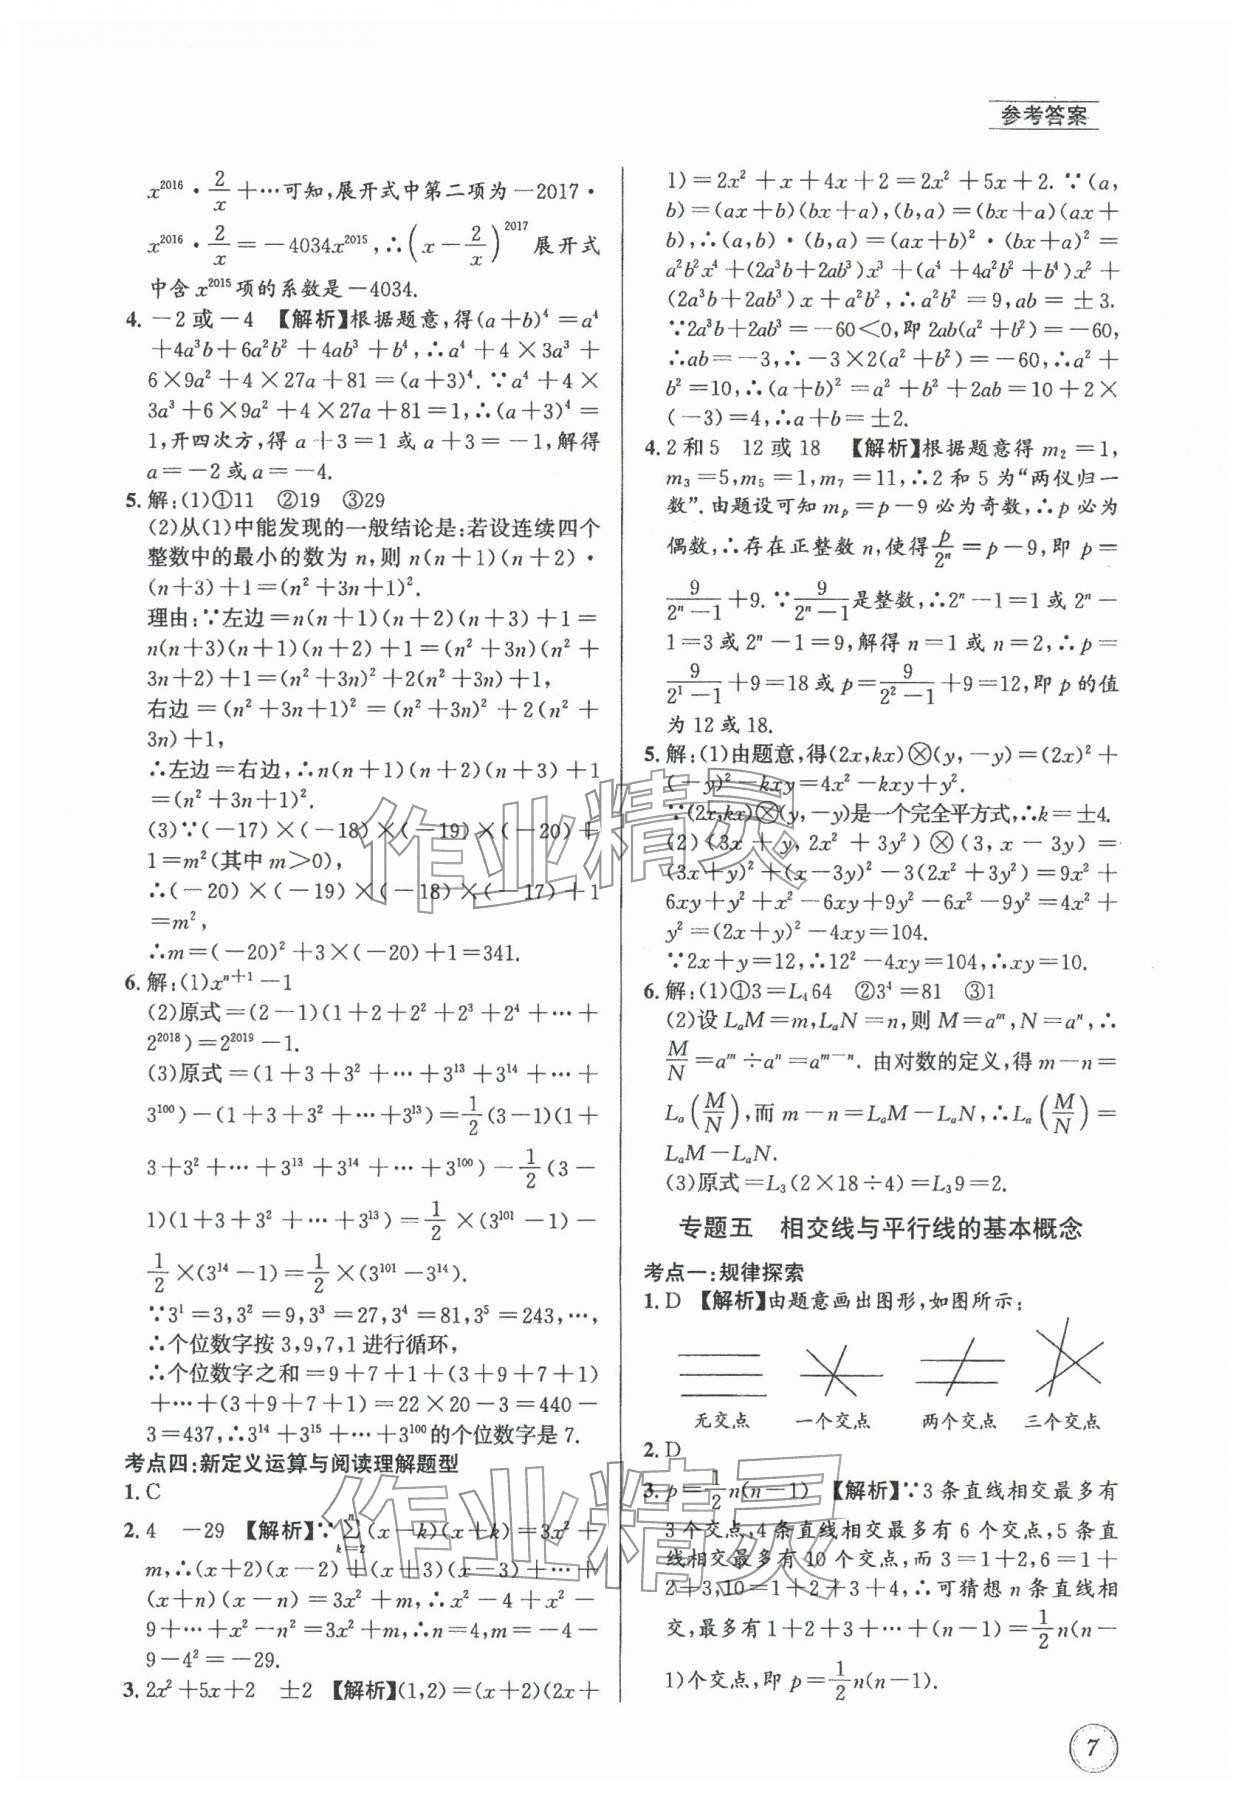 参考答案
x²⁰¹⁶·2/x+…可知,展开式中第二项为－2017·
x²⁰¹⁶·2/x=－4034x²⁰¹⁵,∴(x－2/x)²⁰¹⁷展开式
中含x²⁰¹⁵项的系数是－4034.
4. －2或－4 【解析】根据题意,得(a+b)⁴=a⁴
+4a³b+6a²b²+4ab³+b⁴,∴a⁴+4×3a³+
6×9a²+4×27a+81=(a+3)⁴.∵a⁴+4×
3a³+6×9a²+4×27a+81=1,∴(a+3)⁴=
1,开四次方,得a+3=1或a+3=－1,解得
a=－2或a=－4.
5. 解:(1)①11 ②19 ③29
(2)从(1)中能发现的一般结论是:若设连续四个
整数中的最小的数为n,则n(n+1)(n+2)·
(n+3)+1=(n²+3n+1)².
理由:∵左边=n(n+1)(n+2)(n+3)+1=
n(n+3)(n+1)(n+2)+1=(n²+3n)(n²+
3n+2)+1=(n²+3n)²+2(n²+3n)+1,
右边=(n²+3n+1)²=(n²+3n)²+2(n²+
3n)+1,
∴左边=右边,∴n(n+1)(n+2)(n+3)+1
=(n²+3n+1)².
(3)∵(－17)×(－18)×(－19)×(－20)+
1=m²(其中m>0),
∴(－20)×(－19)×(－18)×(－17)+1
=m²,
∴m=(－20)²+3×(－20)+1=341.
6. 解:(1)xⁿ⁺¹－1
(2)原式=(2－1)(1+2+2²+2³+2⁴+…+
2²⁰¹⁸)=2²⁰¹⁹－1.
(3)原式=(1+3+3²+…+3¹³+3¹⁴+…+
3¹⁰⁰)－(1+3+3²+…+3¹³)=1/2(3－1)(1+
3+3²+…+3¹³+3¹⁴+…+3¹⁰⁰)－1/2(3－
1)(1+3+3²+…+3¹³)=1/2×(3¹⁰¹－1)－
1/2×(3¹⁴－1)=1/2×(3¹⁰¹－3¹⁴).
∵3¹=3,3²=9,3³=27,3⁴=81,3⁵=243,…,
∴个位数字按3,9,7,1进行循环,
∴个位数字之和=9+7+1+(3+9+7+1)
+…+(3+9+7+1)=22×20－3=440－
3=437,∴3¹⁴+3¹⁵+…+3¹⁰⁰的个位数字是7.
考点四:新定义运算与阅读理解题型
1. C
2. 4 －29 【解析】∵∑ⁿₖ₌₂(x－k)(x+k)=3x²+
m,∴(x+2)(x－2)+(x+3)(x－3)+…+
(x+n)(x－n)=3x²+m,∴x²－4+x²－
9+…+x²－n²=3x²+m,∴n=4,m=－4－
9－4²=－29.
3. 2x²+5x+2 ±2 【解析】(1,2)=(x+2)(2x+
1)=2x²+x+4x+2=2x²+5x+2.∵(a,
b)=(ax+b)(bx+a),(b,a)=(bx+a)(ax+
b),∴(a,b)·(b,a)=(ax+b)²·(bx+a)²=
a²b²x⁴+(2a³b+2ab³)x³+(a⁴+4a²b²+b⁴)x²+
(2a³b+2ab³)x+a²b²,∴a²b²=9,ab=±3.
∵2a³b+2ab³=－60<0,即2ab(a²+b²)=－60,
∴ab=－3,∴－3×2(a²+b²)=－60,∴a²+
b²=10,∴(a+b)²=a²+b²+2ab=10+2×
(－3)=4,∴a+b=±2.
4. 2和5 12或18 【解析】根据题意得m₂=1,
m₃=5,m₅=1,m₇=11,∴2和5为“两仪归一
数”.由题设可知mₚ=p－9必为奇数,∴p必为
偶数,∴存在正整数n,使得p/2ⁿ=p－9,即p=
9/(2ⁿ－1)+9.∵9/(2ⁿ－1)是整数,∴2ⁿ－1=1或2ⁿ－
1=3或2ⁿ－1=9,解得n=1或n=2,∴p=
9/(2¹－1)+9=18或p=9/(2²－1)+9=12,即p的值
为12或18.
5. 解:(1)由题意,得(2x,kx)⊗(y,－y)=(2x)²+
(－y)²－kxy=4x²－kxy+y².
∵(2x,kx)⊗(y,－y)是一个完全平方式,∴k=±4.
(2)(3x+y,2x²+3y²)⊗(3,x－3y)=
(3x+y)²+(x－3y)²－3(2x²+3y²)=9x²+
6xy+y²+x²－6xy+9y²－6x²－9y²=4x²+
y²=(2x+y)²－4xy=104.
∵2x+y=12,∴12²－4xy=104,∴xy=10.
6. 解:(1)①3=L₄64 ②3⁴=81 ③1
(2)设LₐM=m,LₐN=n,则M=aᵐ,N=aⁿ,∴
M/N=aᵐ÷aⁿ=aᵐ⁻ⁿ.由对数的定义,得m－n=
Lₐ(M/N),而m－n=LₐM－LₐN,∴Lₐ(M/N)=
LₐM－LₐN.
(3)原式=L₃(2×18÷4)=L₃9=2.
专题五 相交线与平行线的基本概念
考点一:规律探索
1. D 【解析】由题意画出图形,如图所示:
无交点 一个交点 两个交点 三个交点
2. D
3. p=1/2n(n－1) 【解析】∵3条直线相交最多有
3个交点,4条直线相交最多有6个交点,5条直
线相交最多有10个交点,而3=1+2,6=1+
2+3,10=1+2+3+4,∴可猜想n条直线相
交,最多有1+2+3+…+(n－1)=1/2n(n－
1)个交点,即p=1/2n(n－1).
7
作业精灵
作业精灵